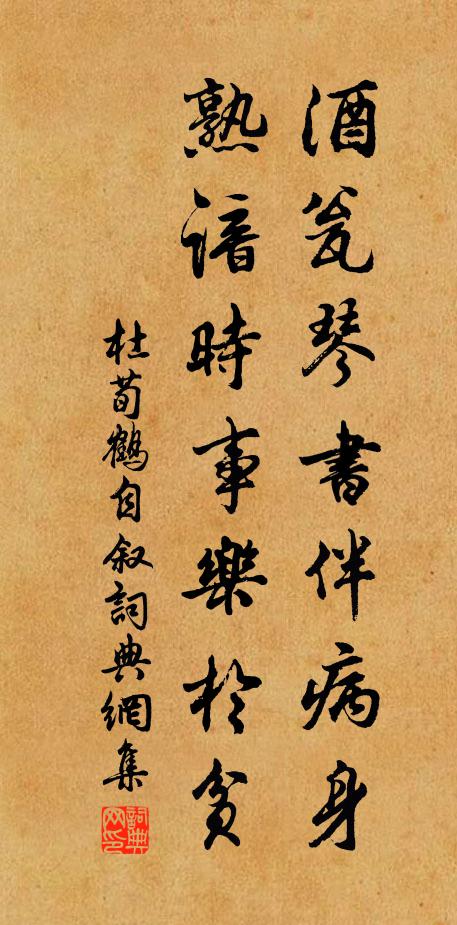 酒瓮琴書伴病身
熟諳時事樂於貧
杜荀鶴自叙詞典網集
詞典网印